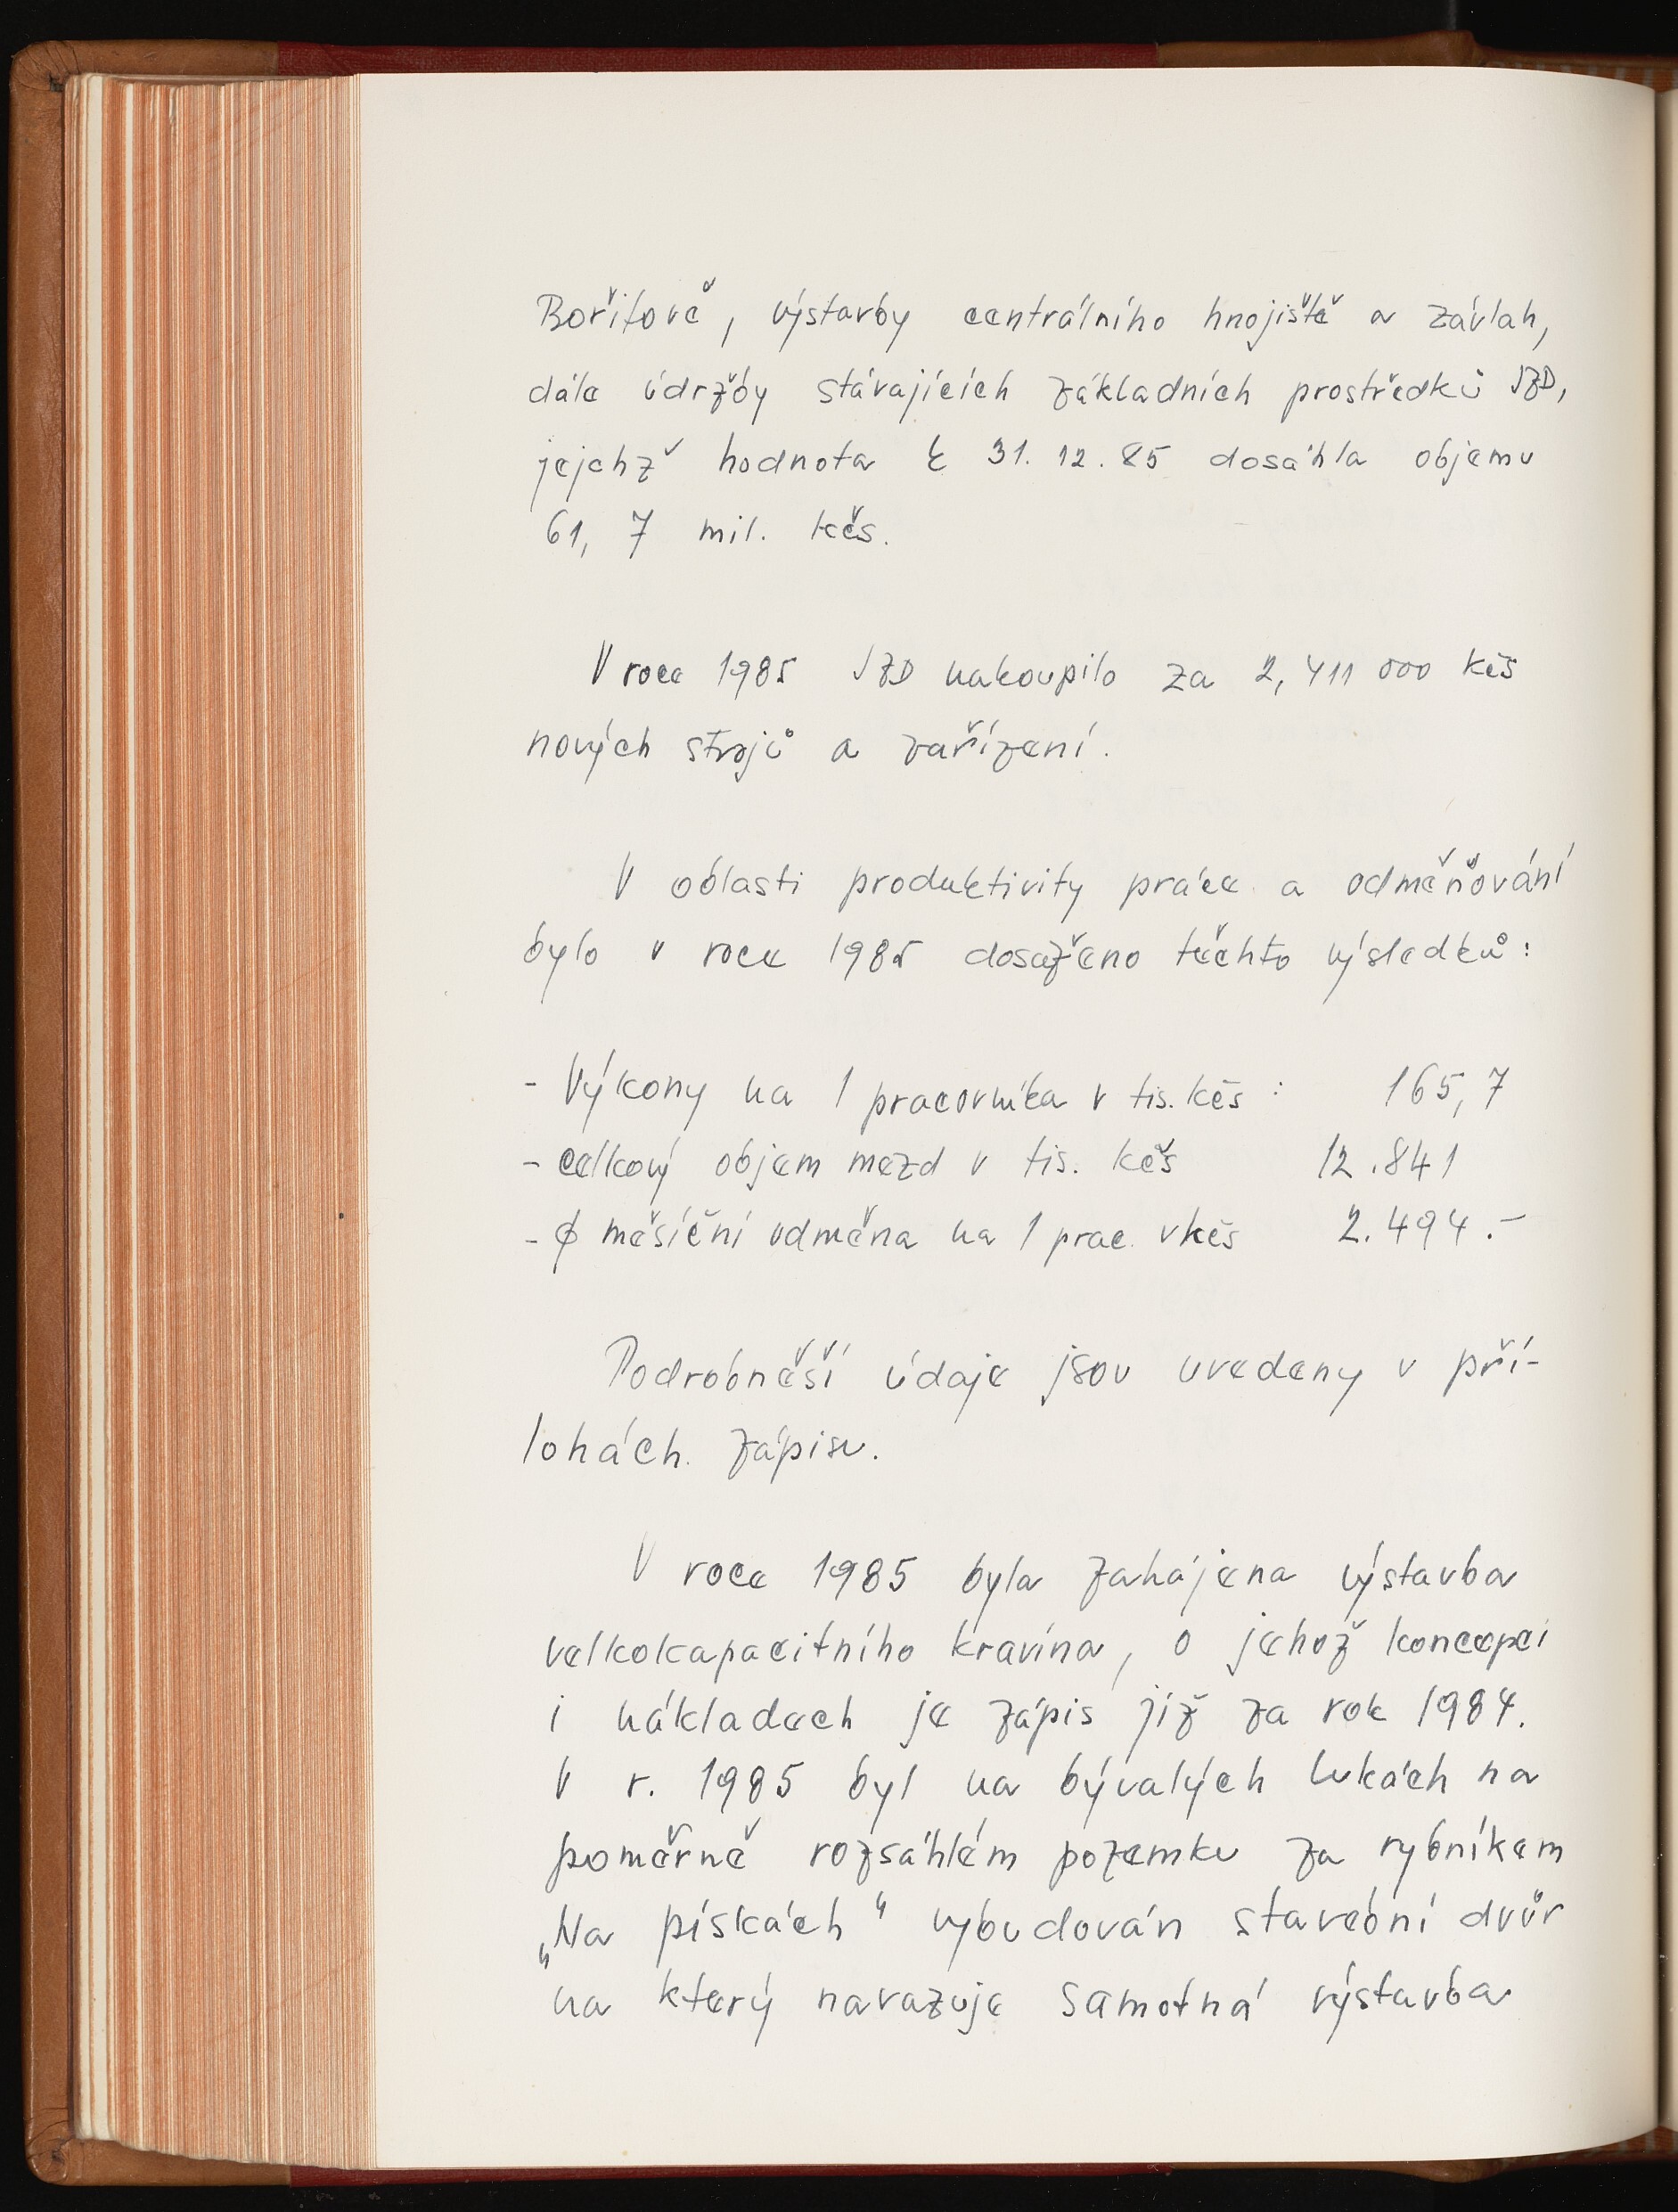 Bořitově, výstavby centrálního hnojiště a závlah,
dále údržby stávajících základních prostředků JZD,
jejchž hodnota k 31. 12. 85 dosáhla objemu
61, 7 mil. kčs.
V roce 1985 JZD nakoupilo za 2, 411 000 kčs
nových strojů a zařízení.
V oblasti produktivity práce a odměňování
bylo v roce 1985 dosaženo těchto výsledků:
- Výkony na 1 pracovníka v tis. kčs : 165, 7
- celkový objem mezd v tis. kčs 12.841
- ϕ měsíční odměna na 1 prac. v kčs 2.494.-
Podrobněší údaje jsou uvedeny v pří-
lohách zápisu.
V roce 1985 byla zahájena výstavba
velkokapacitního kravína, o jehož koncepci
i nákladech je zápis již za rok 1984.
V r. 1985 byl na bývalých lukách na
poměrně rozsáhlém pozemku za rybníkem
„Na pískách“ vybudován stavební dvůr
na který navazuje samotná výstavba